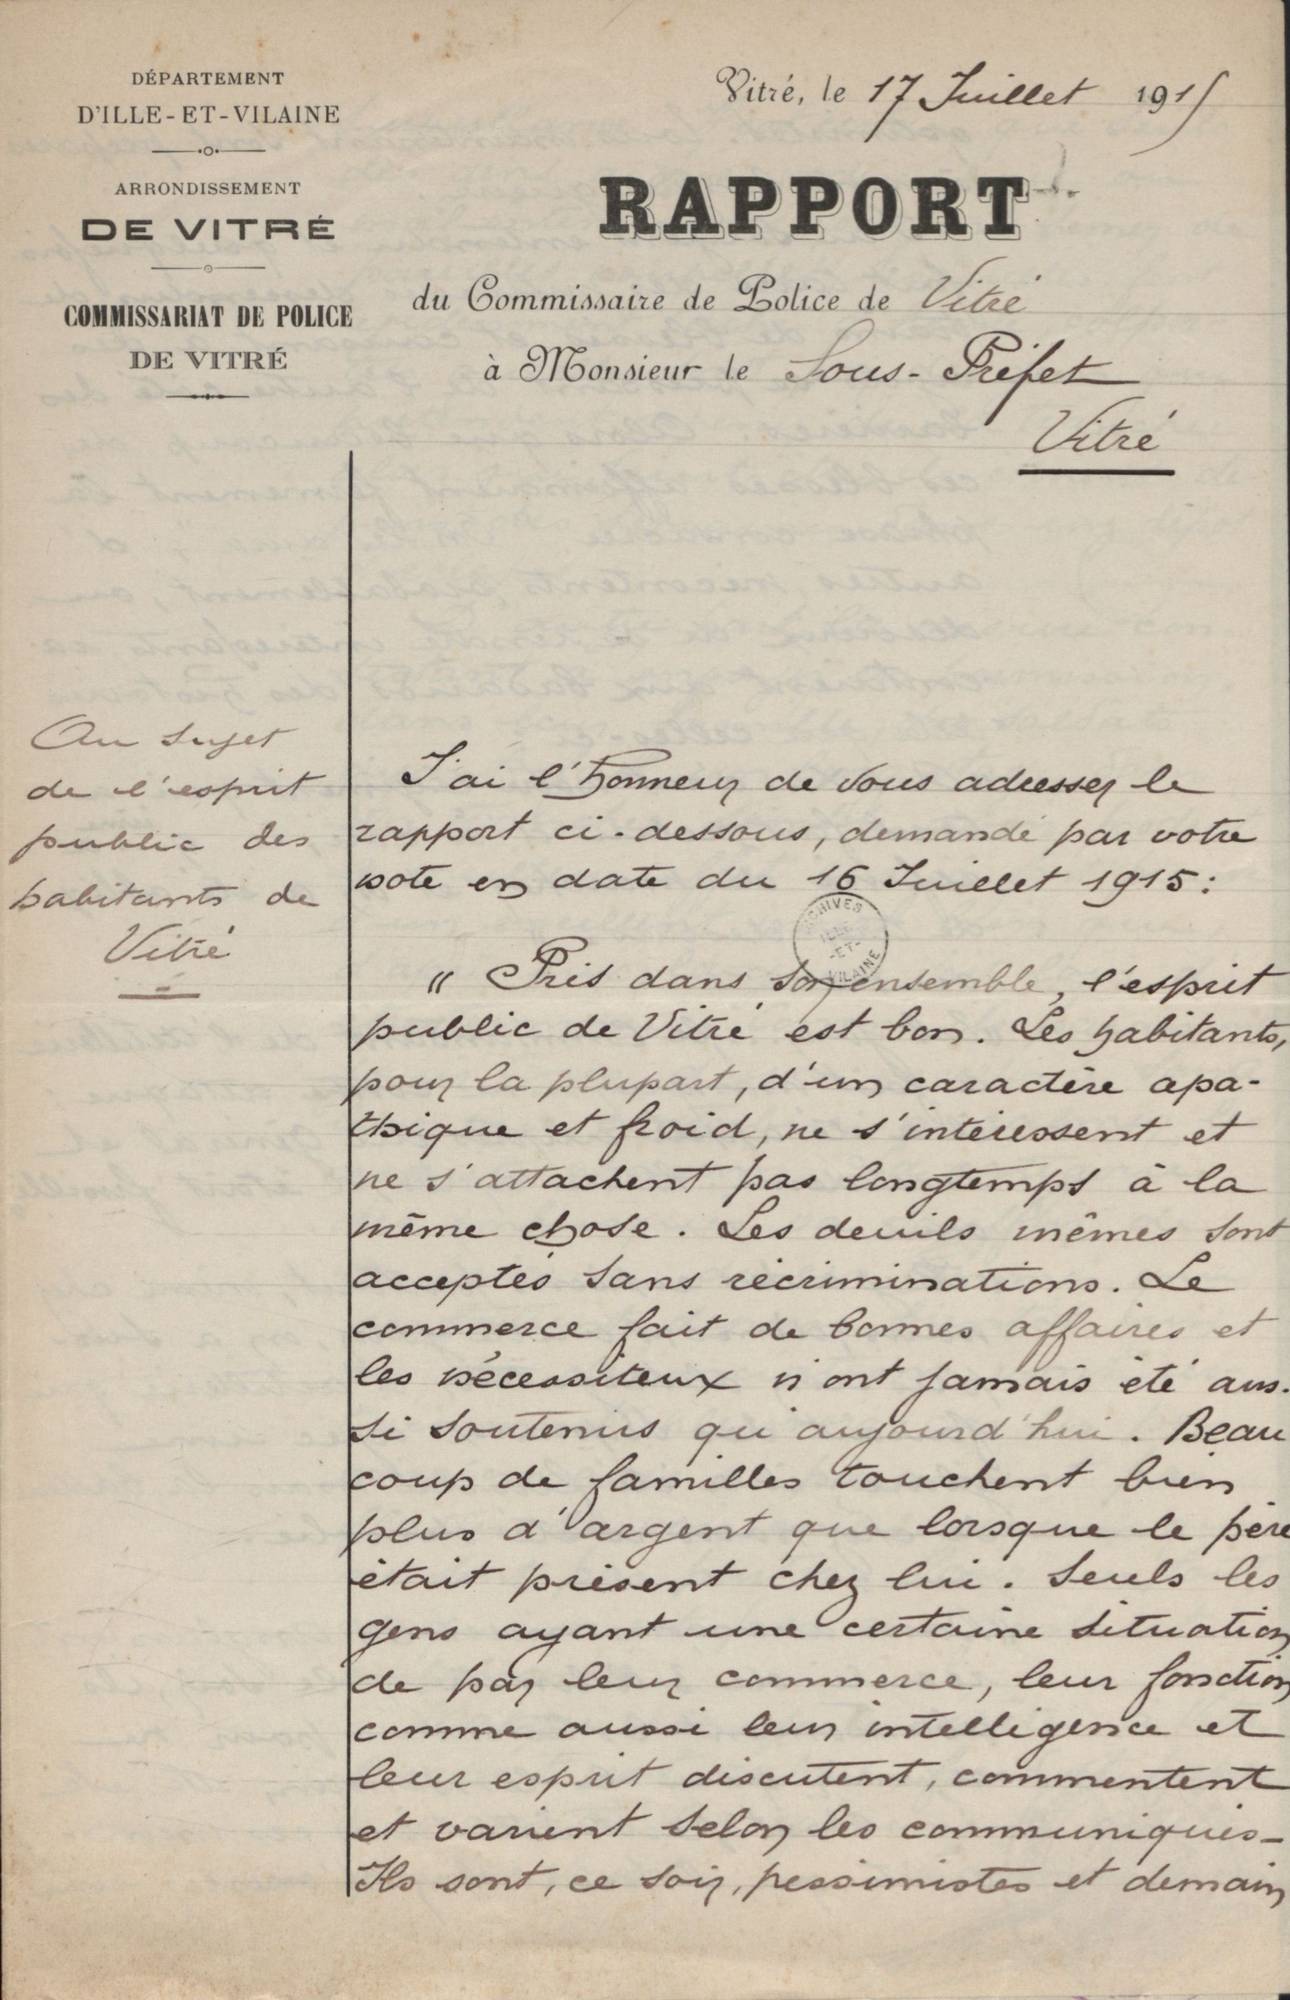 DÉPARTEMENT
D'ILLE-ET-VILAINE
ARRONDISSEMENT
DE VITRÉ
COMMISSARIAT DE POLICE
DE VITRÉ
Vitré, le 17 Juillet 1915
RAPPORT
du Commissaire de Police de Vitré
à Monsieur le Sous-Préfet
Vitré
Au sujet
de l'esprit
public des
habitants de
Vitré
J'ai l'honneur de vous adresser le
rapport ci-dessous, demandé par votre
note en date du 16 Juillet 1915 :
ARCHIVES
ILLE
-ET-
VILAINE
" Pris dans son ensemble, l'esprit
public de Vitré est bon. Les habitants,
pour la plupart, d'un caractère apa-
thique et froid, ne s'intéressent et
ne s'attachent pas longtemps à la
même chose. Les deuils mêmes sont
acceptés sans récriminations. Le
commerce fait de bonnes affaires et
les nécessiteux n'ont jamais été aus-
si soutenus qu'aujourd'hui. Beau
coup de familles touchent bien
plus d'argent que lorsque le père
était présent chez lui. Seuls les
gens ayant une certaine situation
de par leur commerce, leur fonction
comme aussi leur intelligence et
leur esprit discutent, commentent
et varient selon les communiqués-
Ils sont, ce soir, pessimistes et demain